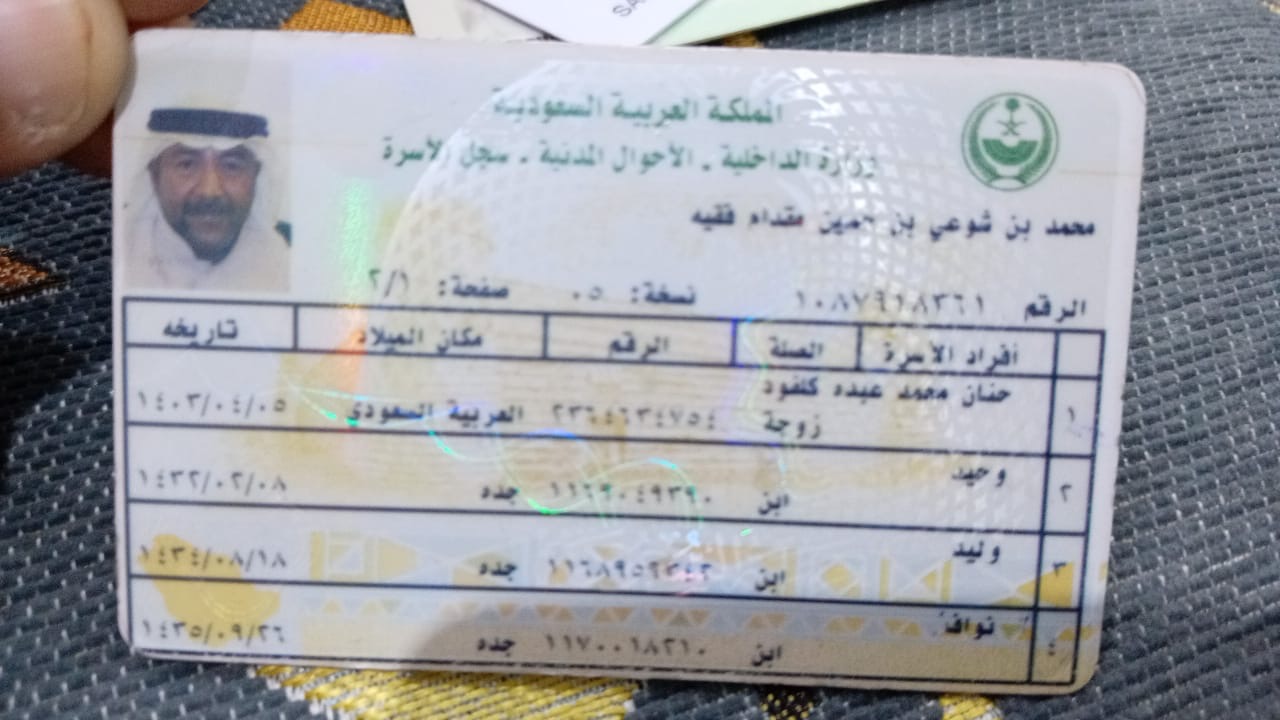 SA
المملكة العربية السعودية
وزارة الداخلية . الأحوال المدنية . سجل الأسرة
محمد بن شوعي بن حسين مقدام فقيه
الرقم ١٠٨٧٩١٨٣٦١ نسخة: ٠٥ صفحة: ٢/١
أفراد الأسرة الصلة الرقم مكان الميلاد تاريخه
١ حنان محمد عبده كلفود
زوجة ٢٣٦٤٦٣٤٧٥٤ العربية السعودي ١٤٠٣/٠٤/٠٥
٢ وحيد
ابن جده ١٤٣٢/٠٢/٠٨
٣ وليد
ابن جده ١٤٣٤/٠٨/١٨
٤ نواف
ابن ١١٧٠٠١٨٢١٠ جده ١٤٣٥/٠٩/٢٦